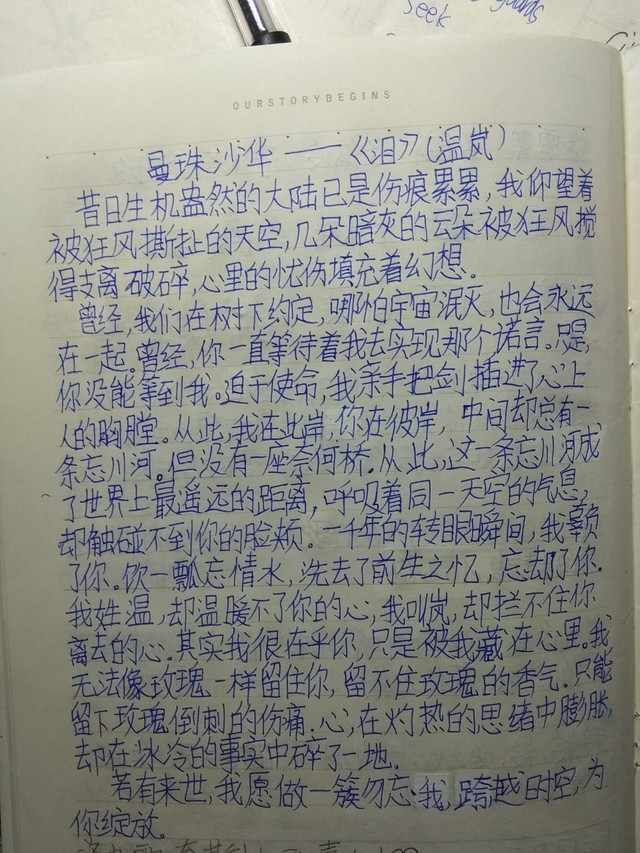 Seek
OURSTORYBEGINS
曼珠沙华——《泪》(温岚)
昔日生机盎然的大陆已是伤痕累累,我仰望着
被狂风撕扯的天空,几朵暗灰的云朵被狂风搅
得支离破碎,心里的忧伤填充着幻想。
曾经,我们在树下约定,哪怕宇宙泯灭,也会永远
在一起。曾经,你一直等待着我去实现那个诺言。只是,
你没能等到我。迫于使命,我亲手把剑插进了心上
人的胸膛。从此,我在此岸,你在彼岸,中间却总有一
条忘川河。但没有一座奈何桥。从此,这一条忘川河成
了世界上最遥远的距离,呼吸着同一天空的气息,
却触碰不到你的脸颊。一千年的转眼瞬间,我辜负
了你。饮一瓢忘情水,洗去了前生之忆,忘却了你。
我姓温,却温暖不了你的心,我叫岚,却拦不住你
离去的心。其实我很在乎你,只是被我藏在心里。我
无法像玫瑰一样留住你,留不住玫瑰的香气。只能
留下玫瑰倒刺的伤痛.心,在灼热的思绪中膨胀,
却在冰冷的事实中碎了一地。
若有来世,我愿做一簇勿忘我,跨越时空,为
你绽放。